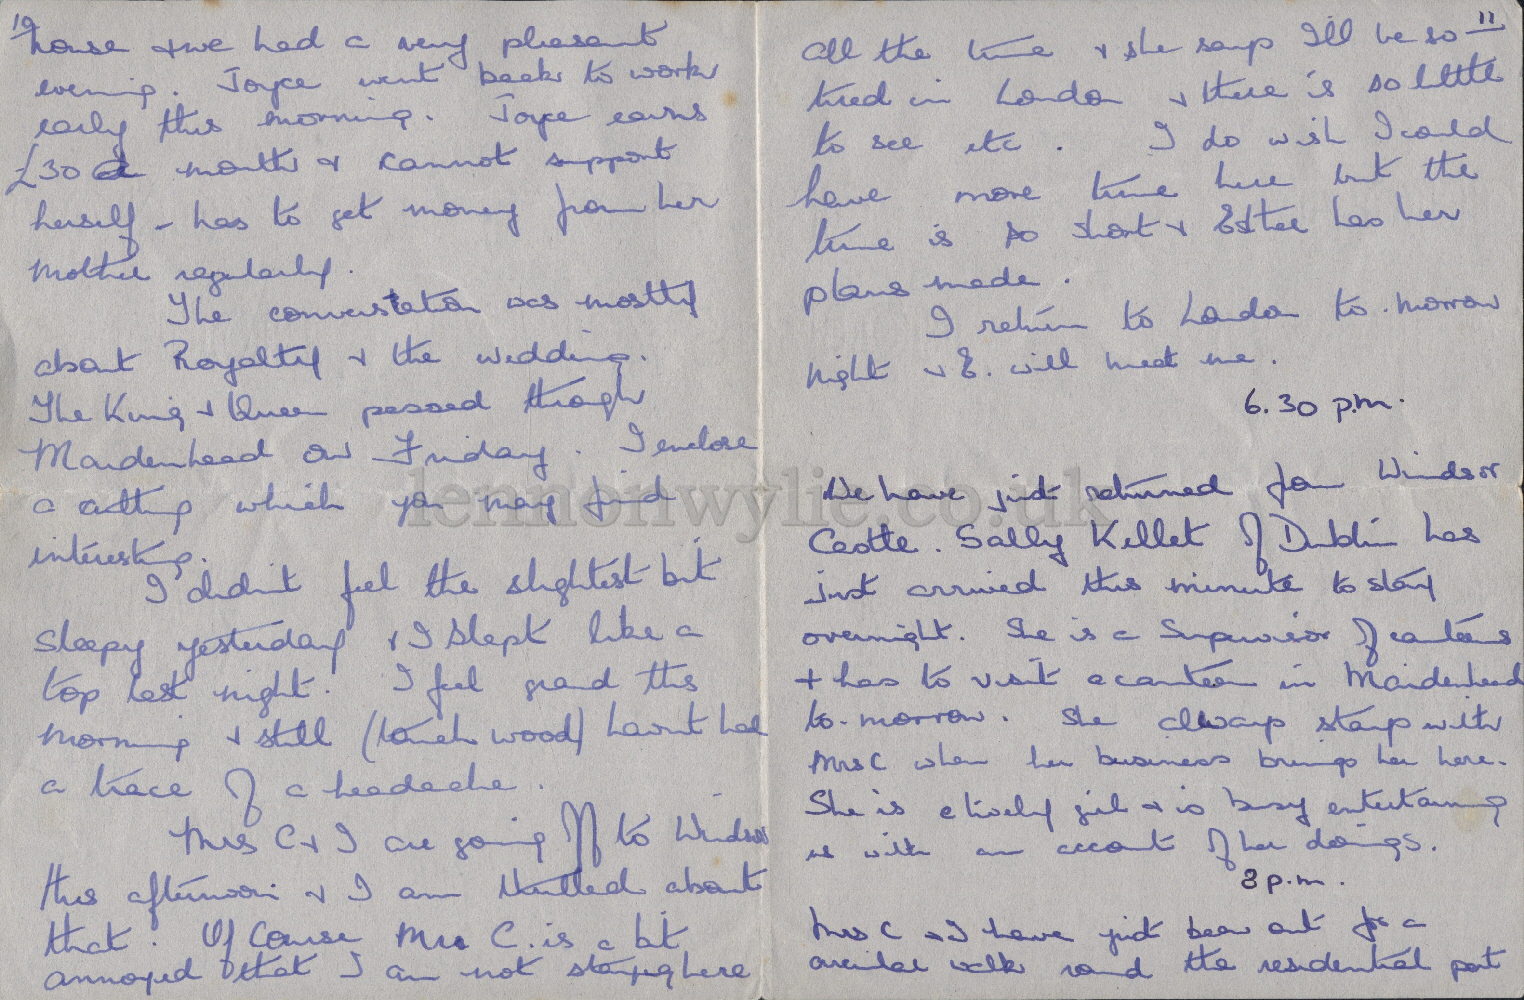 10
house & we had a very pleasant
evening. Joyce went back to work
early this morning. Joyce earns
£30 a month & cannot support
herself - has to get money from her
Mother regularly.
The converstation was mostly
about Royalty & the wedding.
The King & Queen passed through
Maidenhead on Friday. I enclose
a cutting which you may find
interesting.
I didn't feel the slightest bit
sleepy yesterday & I slept like a
top last night. I feel grand this
morning & still (touch wood) havn't had
a trace of a headache.
Mrs C & I are going off to Windsor
this afternoon & I am thrilled about
that. Of course Mrs C. is a bit
annoyed that I am not staying here
11
all the time & she says I'll be so
tired in London & there is so little
to see etc. I do wish I could
have more time here but the
time is so short & Esther has her
plans made.
I return to London to-morrow
night & E. will meet me.
6.30 p.m.
We have just returned from Windsor
Castle. Sally Kellet of Dublin has
just arrived this minute to stay
overnight. She is a Supervisor of canteens
+ has to visit a canteen in Maidenhead
to-morrow. She always stays with
Mrs C when her business brings her here.
She is a lively girl & is busy entertaining
us with an account of her doings.
8 p.m.
Mrs C & I have just been out for a
circular walk round the residential part
lennonwylie.co.uk